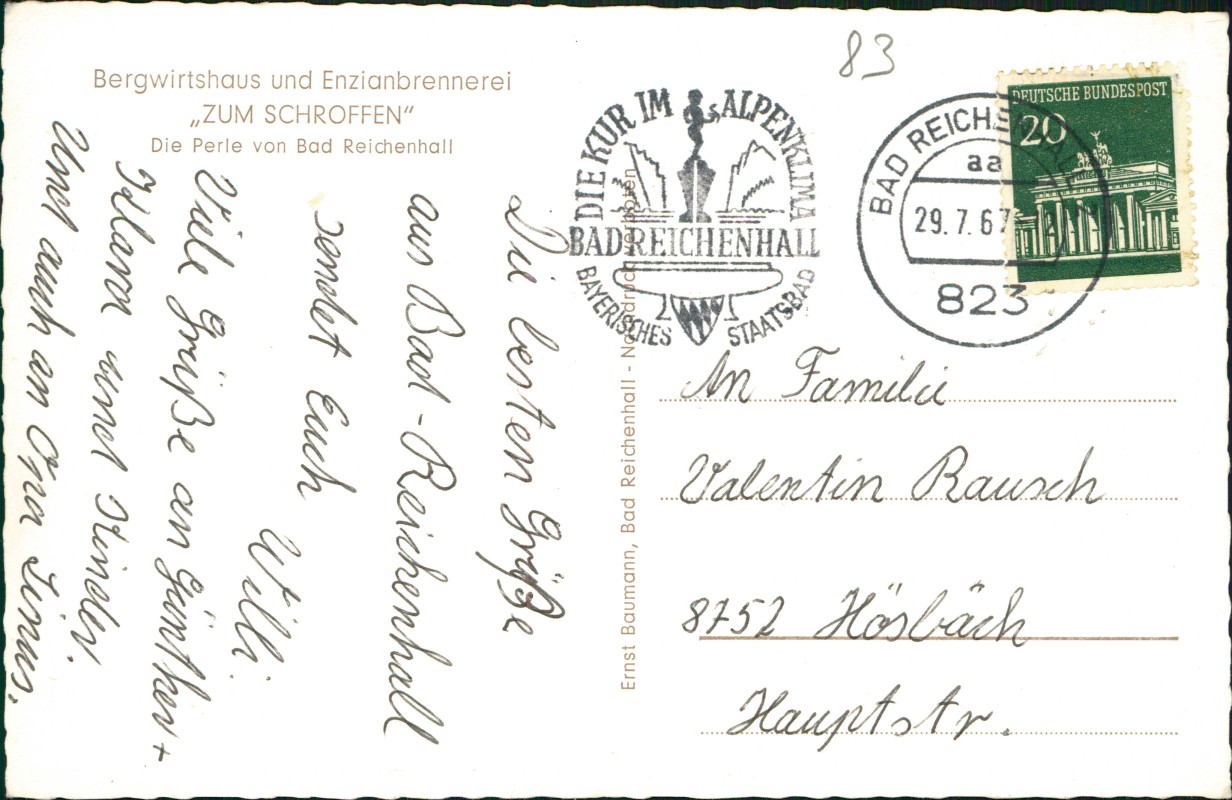 Bergwirtshaus und Enzianbrennerei
„ZUM SCHROFFEN“
Die Perle von Bad Reichenhall
Die besten Grüße
aus Bad-Reichenhall
sendet Euch
Willi.
Viele Grüße an Günther +
Klara und Kinder.
Und auch an Oma
83
DIE KUR IM ALPENKLIMA
BAD REICHENHALL
BAYERISCHES STAATSBAD
BAD REICHENHALL
aa
29.7.67
823
DEUTSCHE BUNDESPOST
20
Ernst Baumann, Bad Reichenhall - Nachdruck verboten
An Familie
Valentin Rausch
8752 Hösbäch
Hauptstr.